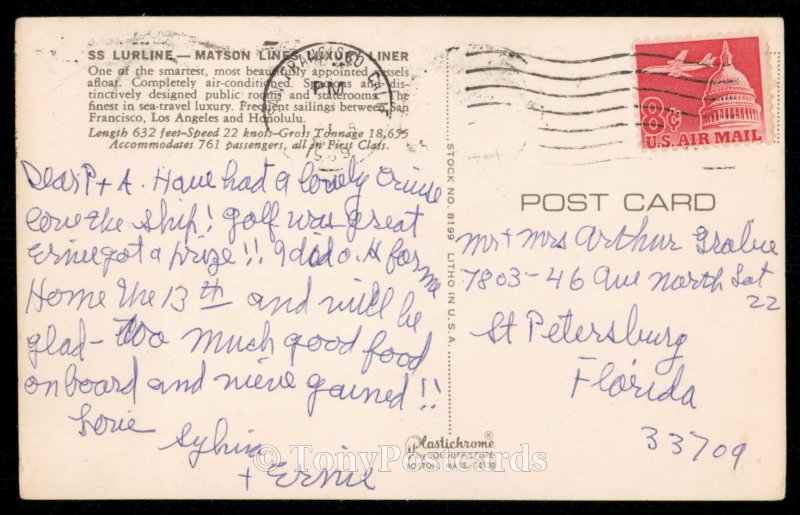 SS LURLINE—MATSON LINES LUXURY LINER
One of the smartest, most beautifully appointed vessels
afloat. Completely air-conditioned. Spacious and dis-
tinctively designed public rooms and staterooms. The
finest in sea-travel luxury. Frequent sailings between San
Francisco, Los Angeles and Honolulu.
Length 632 feet-Speed 22 knots-Gross Tonnage 18,655
Accommodates 761 passengers, all in First Class.
SAN FRANCISCO CALIF
PM
8¢
U.S. AIR MAIL
Dear P + A. Have had a lovely cruise
love the ship! golf was great
Ernie got a prize!! I did o.k for me
Home the 13th and will be
glad - too much good food
on board and nieve gained!!
Love
Sylvia
+ Ernie
STOCK NO. 8199 LITHO IN U.S.A.
POST CARD
Mr + Mrs Arthur
7803-46 Ave North Lot
22
St Petersburg
Florida
33709
Plastichrome®
by COLOURPICTURE
BOSTON, MASS. 02130
© TonyPostcards